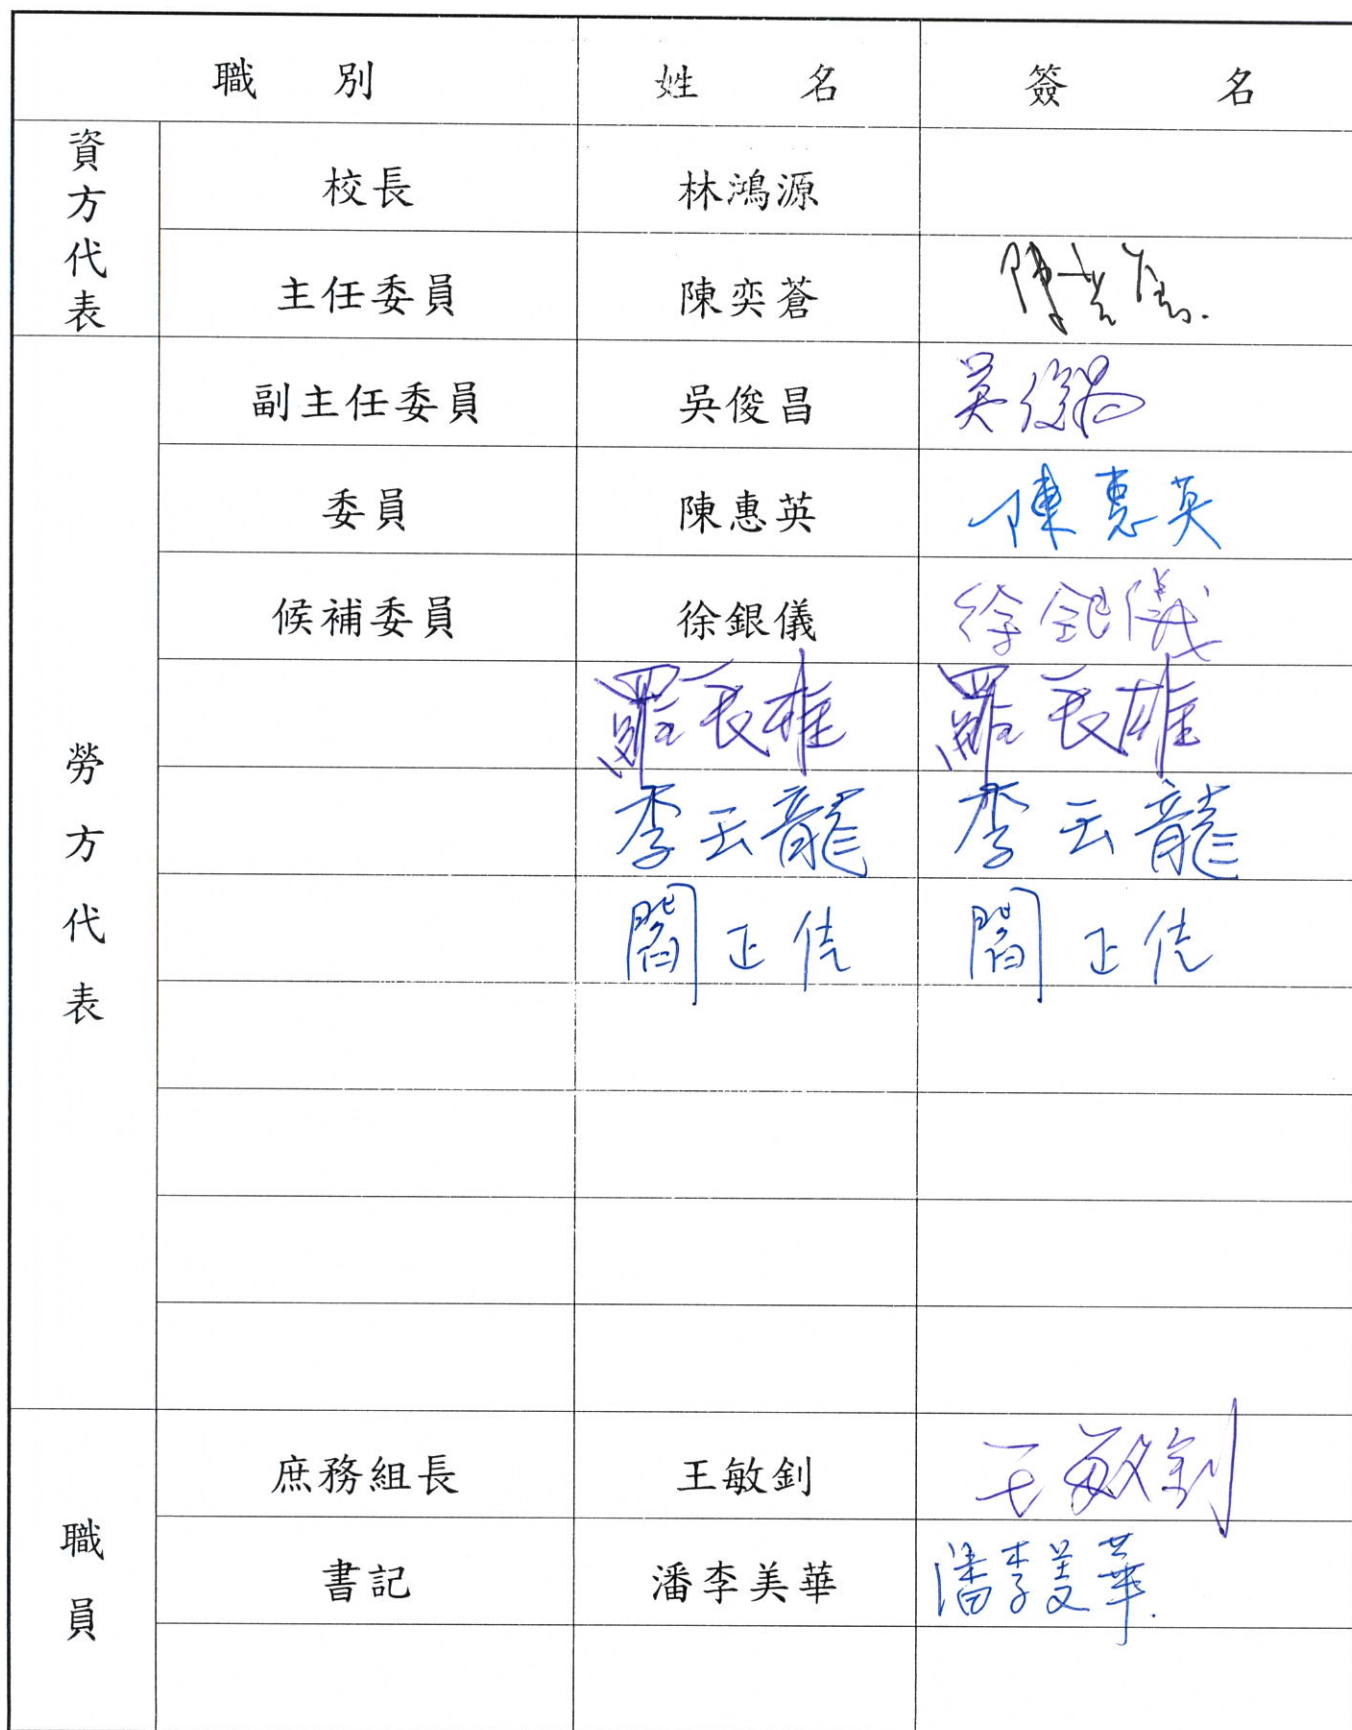 職 別 姓 名 簽 名
資方代表
校長 林鴻源
主任委員 陳奕蒼 陳奕蒼
勞方代表
副主任委員 吳俊昌 吳俊昌
委員 陳惠英 陳惠英
候補委員 徐銀儀 徐銀儀
羅長雄 羅長雄
李云龍 李云龍
閻正 閻正
職員
庶務組長 王敏釗 王敏釗
書記 潘李美華 潘李美華